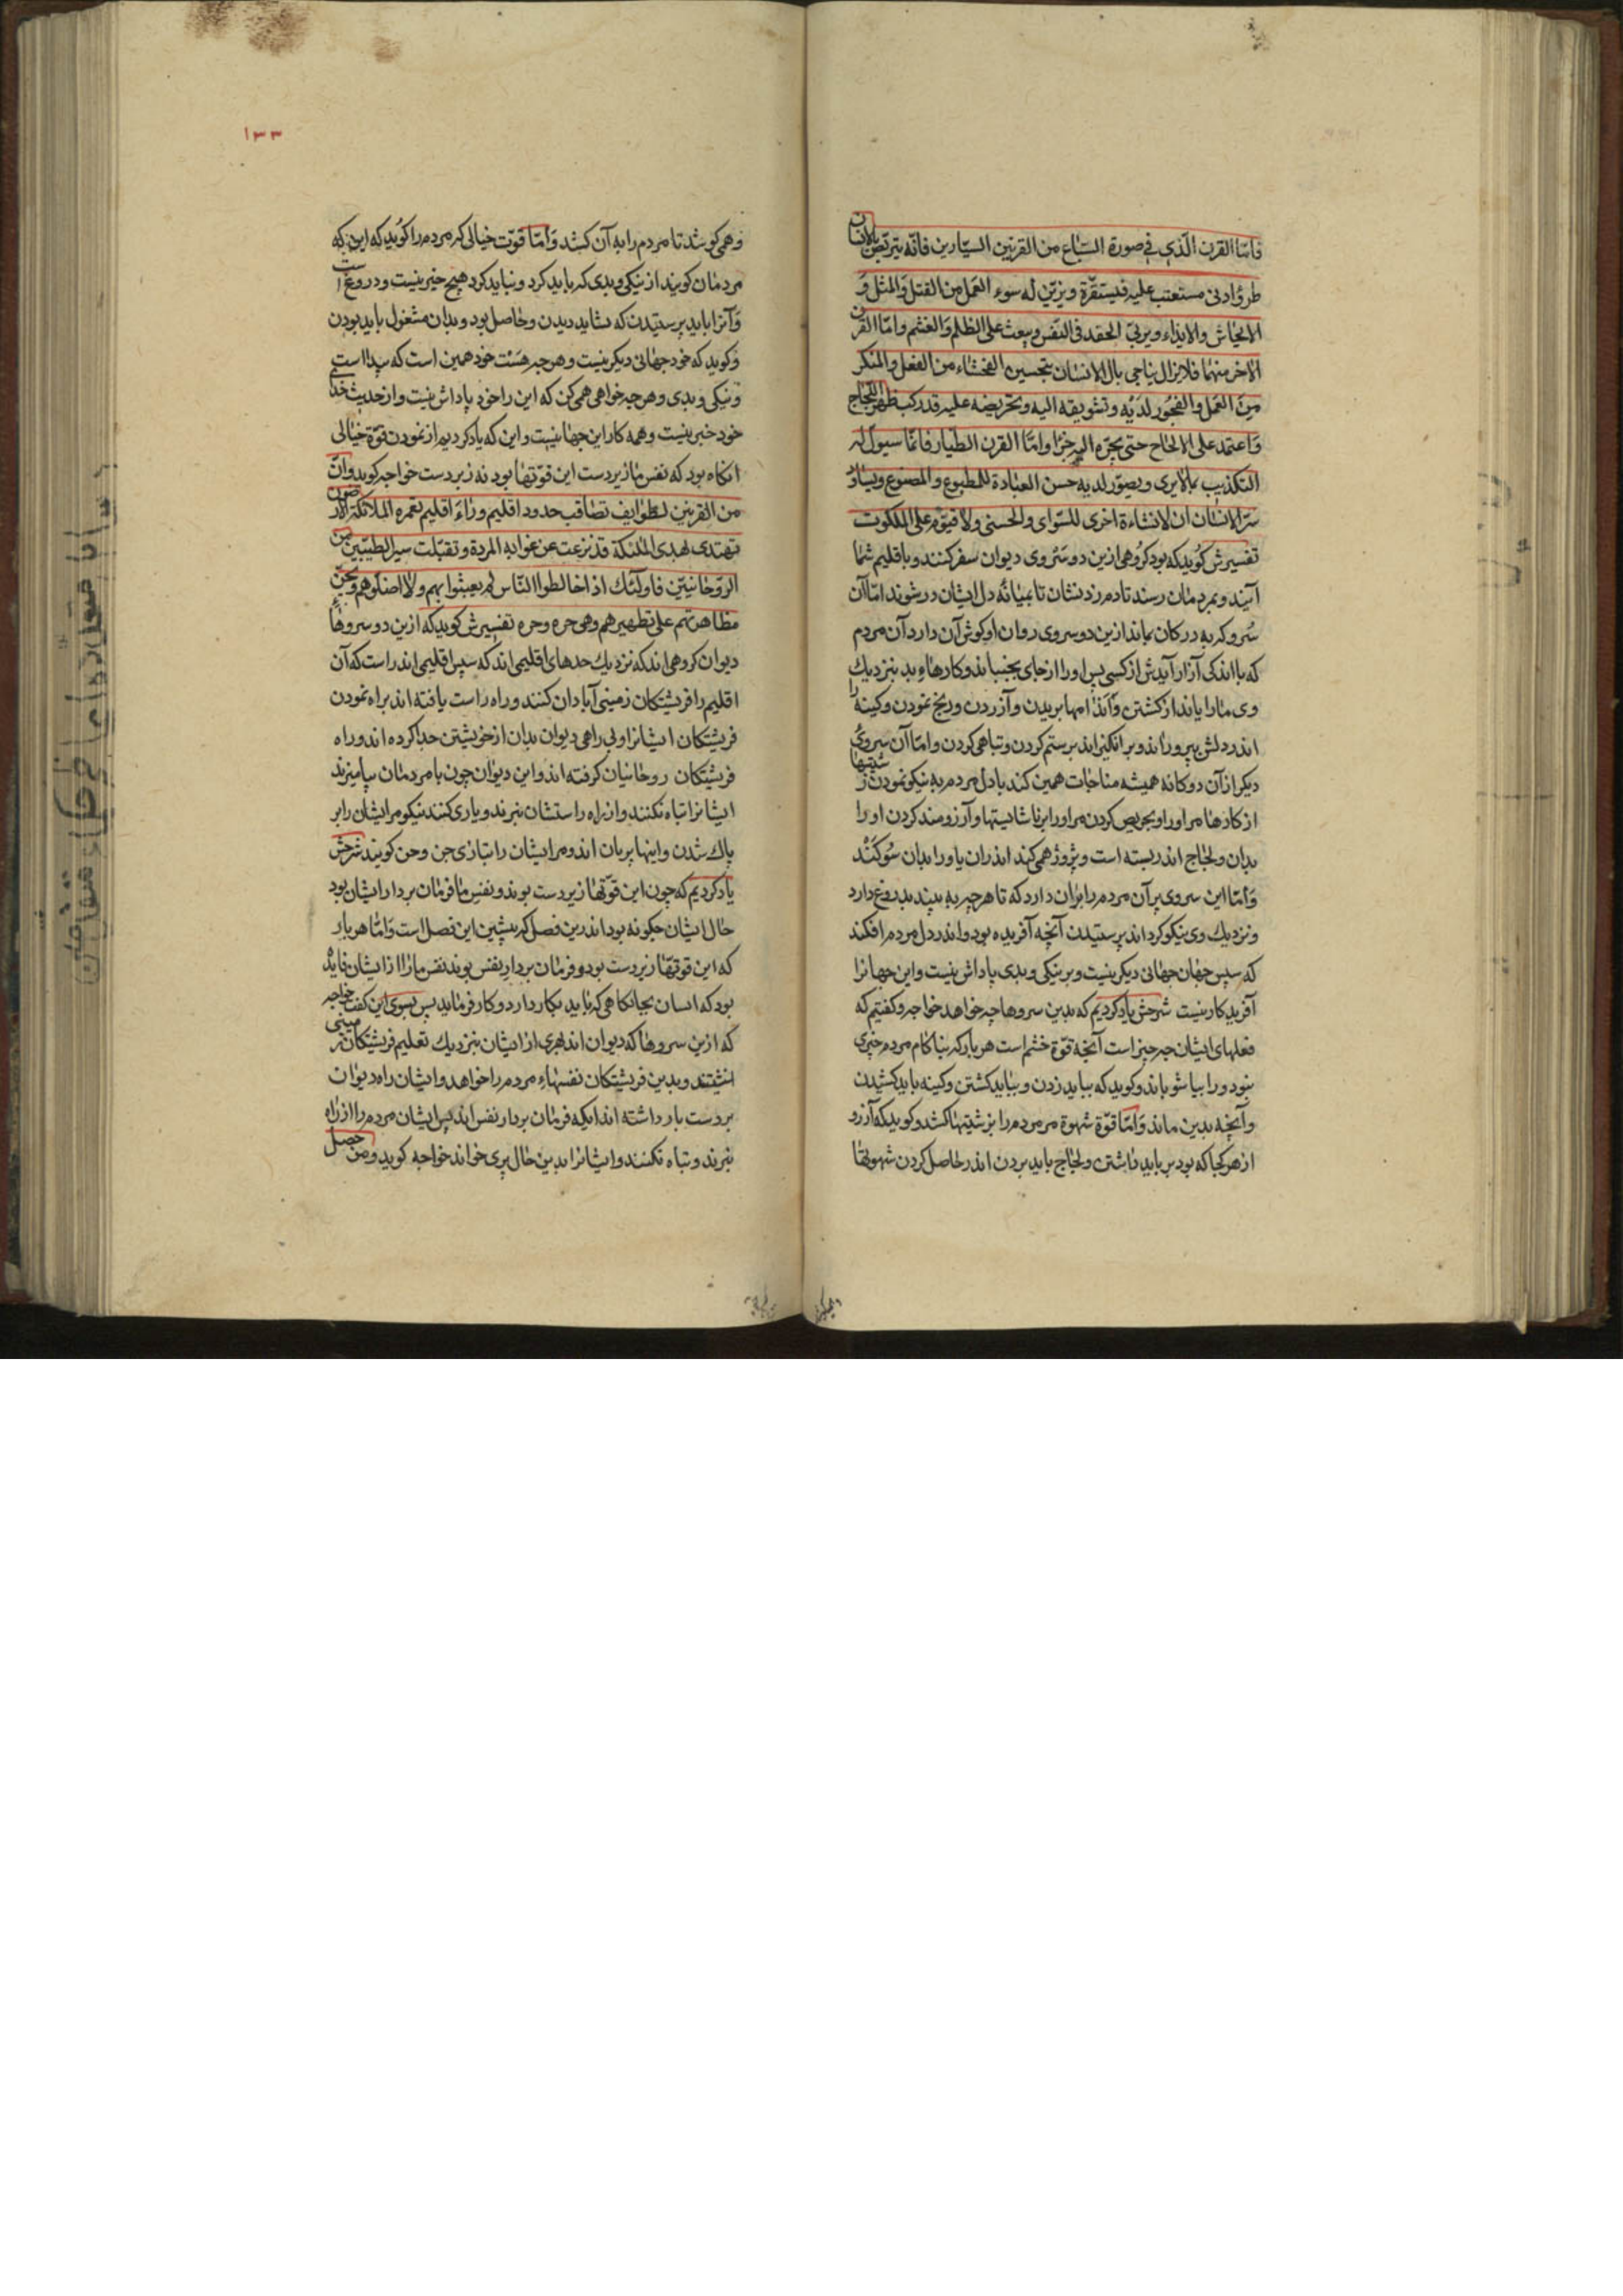 فامّا القرن الّذی فی صورة السّباع من القرنین السیّارین فانّه یتربّص بالانسان
طروّ ادنی مستعتب علیه فیستفزّه ویزیّن له سوء العمل من القتل والمثل و
الایحاش والایذاء ویربّی الحقد فی النفس ویبعث علی الظلم والغشم وامّا القرن
الآخر منهما فلایزال یناجی بال الانسان بتحسین الفحشاء من الفعل والمنکر
من العمل والفجور لدیه وتشویقه الیه وتحریضه علیه قد رکب ظهر اللّجاج
واعتمد علی الالحاح حتی یجرّه الیه جرّا وامّا القرن الطیّار فانّما سیوّل له
التکذیب بمالایری ویصوّر لدیه حسن العبادة للمطبوع والمصنوع ویساوّ
سرّ الانسان ان لانشاءة اخری للسّوای والحسنی ولا قیّوم علی الملکوت
تفسیرش کوید که بود کروهی ازین دو سروی دیوان سفر کنند و باقلیم شما
آیند و بمردمان رسند تا دم زدنشان تا بمیانه دل ایشان درشوند امّا آن
سرو که به ددکان ماند ازین دو سروی روان او کوش آن دارد آن مردم
که با اندکی آزار آیدش از کسی پس او را از جای بجنباند و کارهاء بد بنزدیک
وی مارا یاند از کشتن و اندامها بریدن و آزردن ورنج نمودن و کینه را
اندر دلش بپروراند و برانکیزاند بر ستم کردن و تباهی کردن و امّا آن سروی
دیکر از آن دوکانه همیشه مناجات همین کند با دل مردم به نیکو نمودن زشتیها
از کارها مر او را و بحریص کردن مر او را بر ناشایستها و آرزومند کردن او را
بدان ولجاج اندر بسته است وپژوژ همی کند اندران یاورا بدان سوکشد
وامّا این سروی پرآن مردم را بران دارد که تا هرچه به بیند بدروغ دارد
ونزدیک وی نیکو کرداند پرستیدن آنچه آفریده بود و اندر دل مردم افکند
که سپس جهان جهانی دیکر نیست و بر نیکی و بدی پاداش نیست و این جهانرا
آفریدکار نیست شرحش یاد کردیم که بدین سروها چه خواهد خواجه وکفتیم که
فعلهای ایشان چه چیز است آنچه قوّة خشم است هر بار که بناکام مردم خبری
بنود ورا بیاشوباند وکوید که بباید زدن و بباید کشتن وکینه باید کشیدن
وآنچه بدین ماند وامّا قوّة شهوة مر مردم را بزشتیها کشد وکوید که آرزو
از هر کجا که بود بر باید داشتن ولجاج باید بردن اندر حاصل کردن شهوتها
۱۳۳
وهمی کوشد تا مردم را به آن کشد وامّا قوّت خیالی که مردم را کوید که این که
مردمان کویند از نیکی وبدی که باید کرد و نباید کرد هیچ خبر نیست و دروغ است
وآنرا باید پرستیدن که بشاید دیدن وحاصل بود و بدان مشغول باید بودن
وکوید که خود جهانی دیکر نیست و هرچه هست خود همین است که پیدا است
ونیکی و بدی وهرچه خواهی همی کن که این را خود پاداش نیست و از حدیث خدا
خود خبر نیست وهمه کار این جهانیست واین که یاد کردیم از نمودن قوّة خیالی
انکاه بود که نفس ما زیر دست این قوّتها بود نه زبردست خواجه کوید وانّ
من القرنین لطوایف تصاقب حدود اقلیم وراء اقلیم تعمره الملائکة الارضیون
تهتدی بهدی الملئکة قد نزعت عن غوایة المردة وتقبّلت سیر الطیّبین من
الرّوحانیّین فاولئک اذا خالطوا النّاس لم یعبثوا بهم ولا اضلّوهم ویحسن
مظاهرتهم علی تطهیرهم وهی جره وحره تفسیرش کوید که ازین دو سروها
دیوان کروهی اند که نزدیک حدهای اقلیمی اند که سپس اقلیمی اندر است که آن
اقلیم را فریشتکان زمینی آبادان کنند وراه راست یافته اند براه نمودن
فریشتکان ایشانرا و بی راهی دیوان بدان از خویشتن جدا کرده اند و راه
فریشتکان روحانیان کرفته اند و این دیوان چون با مردمان بیامیزند
ایشانرا تباه نکنند و از راه راستشان نبرند و یاری کنند نیکو مر ایشان را بر
پاک شدن و اینها پریان اند و مر ایشان را بتازی جن وحن کویند شرحش
یاد کردیم که چون این قوّتها زیر دست بوند و نفس ما فرمان بردار ایشان بود
حال ایشان چکونه بود اندرین فصل که پیشین این فصل است وامّا هر بار
که این قوتها زیردست بود و فرمان بردار نفس بوند نفس مارا از ایشان فایده
بود که انسان بجایکاهی که باید بکار دارد و کار فرماید پس بسوی این کفت خواجه
که ازین سروها که دیوان اند بهری از ایشان بنزدیک تعلیم فریشتکان زمینی
انشستند و بدین فریشتکان نفسهاء مردم را خواهد و ایشان راه دیوان
بردست باز داشته اند ایکه فرمان بردار نفس اند پس ایشان مردم را از راه
نبرند و تباه نکنند و ایشانرا بدین حال پری خواند خواجه کوید ومن حصل